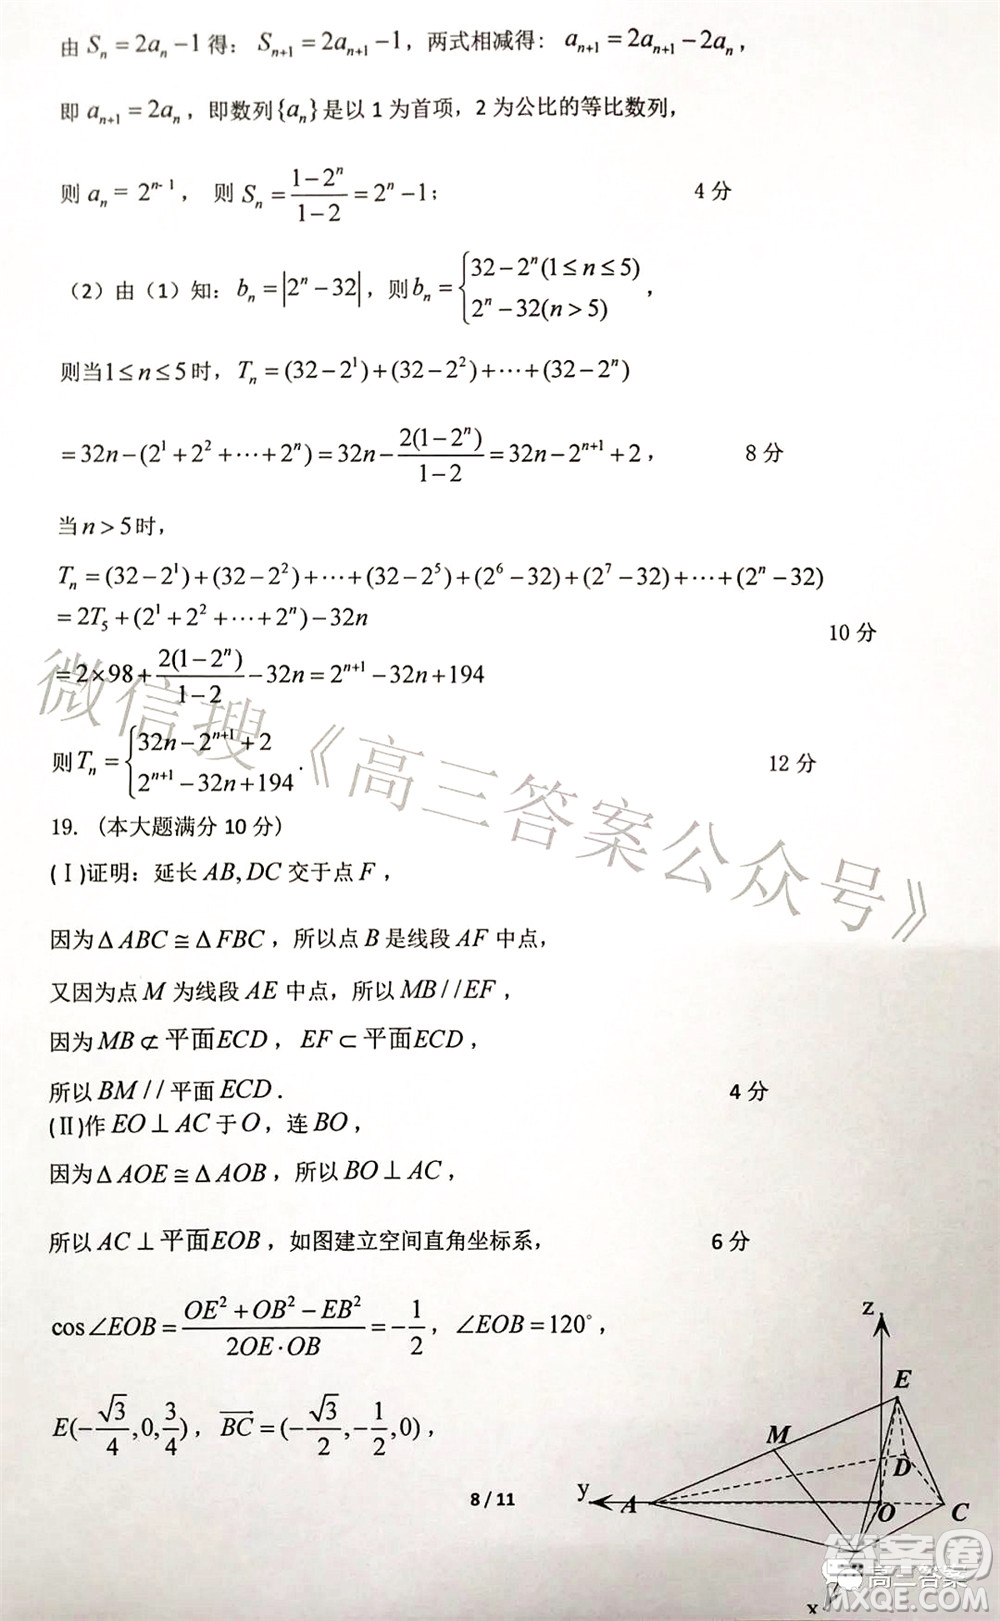 由 Sₙ = 2aₙ − 1 得： Sₙ₊₁ = 2aₙ₊₁ − 1，两式相减得： aₙ₊₁ = 2aₙ₊₁ − 2aₙ，
即 aₙ₊₁ = 2aₙ，即数列{aₙ}是以 1 为首项，2 为公比的等比数列，
则 aₙ = 2^{n-1}， 则 Sₙ = \frac{1-2^n}{1-2} = 2^n − 1； 4 分
（2）由（1）知：bₙ = |2^n − 32|，则 bₙ = \begin{cases} 32-2^n(1≤n≤5) \\ 2^n-32(n>5) \end{cases}，
则当 1≤n≤5 时，Tₙ = (32−2^1)+(32−2^2)+⋯+(32−2^n)
= 32n−(2^1+2^2+⋯+2^n) = 32n − \frac{2(1-2^n)}{1-2} = 32n − 2^{n+1} + 2， 8 分
当 n > 5 时，
Tₙ = (32−2^1)+(32−2^2)+⋯+(32−2^5)+(2^6−32)+(2^7−32)+⋯+(2^n−32)
= 2T₅+(2^1+2^2+⋯+2^n)−32n
10 分
= 2×98 + \frac{2(1-2^n)}{1-2} − 32n = 2^{n+1} − 32n + 194
则 Tₙ = \begin{cases} 32n-2^{n+1}+2 \\ 2^{n+1}-32n+194 \end{cases}. 12 分
19. (本大题满分 10 分)
(Ⅰ)证明：延长 AB, DC 交于点 F，
因为 Δ ABC ≅ Δ FBC，所以点 B 是线段 AF 中点，
又因为点 M 为线段 AE 中点，所以 MB // EF，
因为 MB ⊄ 平面ECD， EF ⊂ 平面ECD，
所以 BM // 平面 ECD． 4 分
(Ⅱ)作 EO ⊥ AC 于 O，连 BO，
因为 Δ AOE ≅ Δ AOB，所以 BO ⊥ AC，
所以 AC ⊥ 平面EOB，如图建立空间直角坐标系， 6 分
cos∠EOB = \frac{OE^2+OB^2-EB^2}{2OE·OB} = −\frac{1}{2}，∠EOB = 120°，
E(−\frac{√3}{4}, 0, \frac{3}{4})，\overline{BC} = (−\frac{√3}{2}, −\frac{1}{2}, 0)，
z
E
M
D
y
A
O
C
x
8 / 11
微信搜《高三答案公众号》
答案圈
高三答案
MXQE.COM